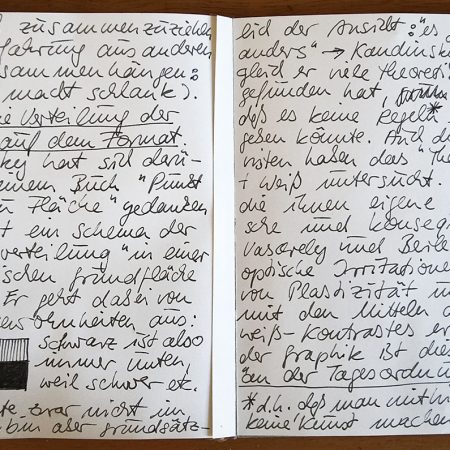 zusammenzuziehen
fahrung aus anderen
sammenhängen:
macht schlank).
Verteilung der
auf dem Format.
ky hat sich darü-
einem Buch "Punkt
Fläche" gedanken
t ein schema der
verteilung" in einer
schen grundfläche
Er geht dabei von
ewohnheiten aus:
schwarz ist also
immer unten,
weil schwer etc.
zwar nicht im
aber grundsätz-
lich der Ansicht: "es g
anders" → Kandinsk
gleich er viele theoreti
gefunden hat,
daß es keine Regeln*
geben könnte. Auch di
nisten haben das "The
+ weiß untersucht.
die ihnen eigene
sche und konsequ
Vasarely und Berke
optische Irritatione
von Plastizität u
mit den Mitteln d
weiß-Kontrastes er
der graphik ist dies
an der Tagesordnu
*d.h. daß man mit ih
keine Kunst machen